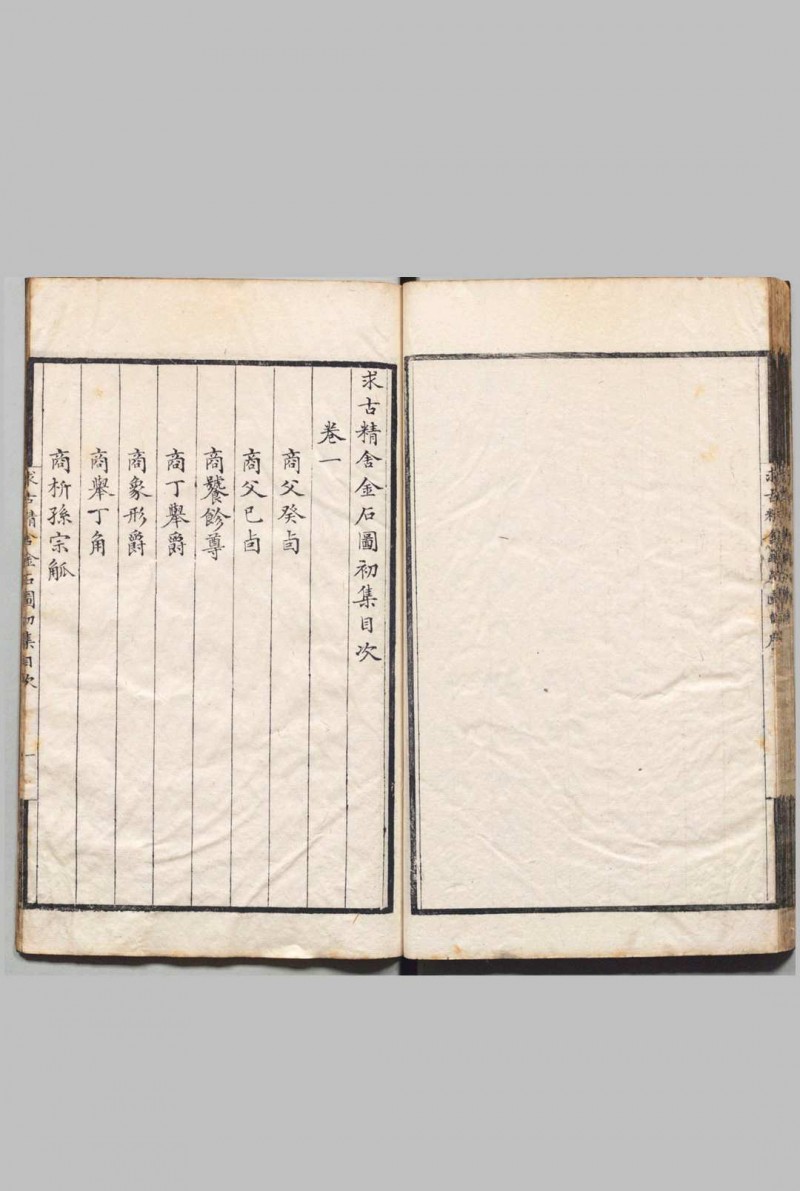 求古精舍金石圖初集目次
卷一
商父癸卣
商父巳卣
商饕餮尊
商丁舉爵
商象形爵
商舉丁角
商析孫宗觚
求古精舍金石圖初集目次 一